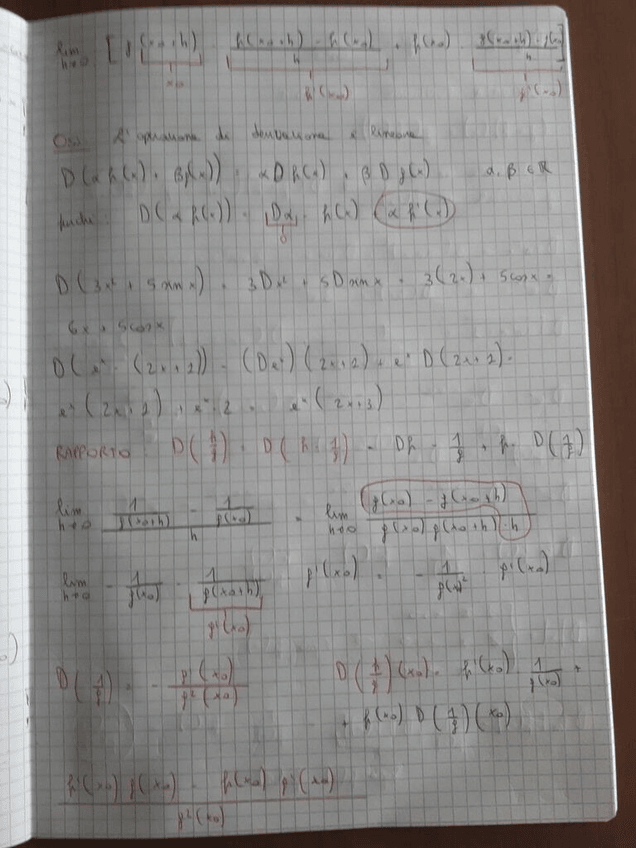 lim h→0 [ g(x₀+h) · (f(x₀+h) - f(x₀))/h + f(x₀) · (g(x₀+h) - g(x₀))/h ]
x₀ f'(x₀) g'(x₀)
Oss. L'operazione di derivazione è lineare
D(α f(x) + β g(x)) = α D f(x) + β D g(x) α, β ∈ ℝ
D(α f(x)) = Dα · f(x) (α f'(x))
0
D(3x² + 5 sin x) = 3Dx² + 5D sin x = 3(2x) + 5 cos x =
6x + 5 cos x
D(eˣ · (2x+2)) = (Deˣ)(2x+2) + eˣ D(2x+2) =
eˣ · 2 =
RAPPORTO D(f/g) = D(f · 1/g) = Df · 1/g + f · D(1/g)
lim h→0 (1/g(x₀+h) - 1/g(x₀))/h = lim h→0 (g(x₀) - g(x₀+h))/(g(x₀) g(x₀+h) · h)
lim h→0 - 1/g(x₀) · 1/g(x₀+h) g'(x₀) = - 1/g(x)² g'(x₀)
g'(x₀)
D(1/g) = - g'(x₀)/g²(x₀) D(1/g)(x₀) = f'(x₀) 1/g(x₀) +
+ f(x₀) D(1/g)(x₀)
(f'(x₀) g(x₀) - f(x₀) g'(x₀))/g²(x₀)